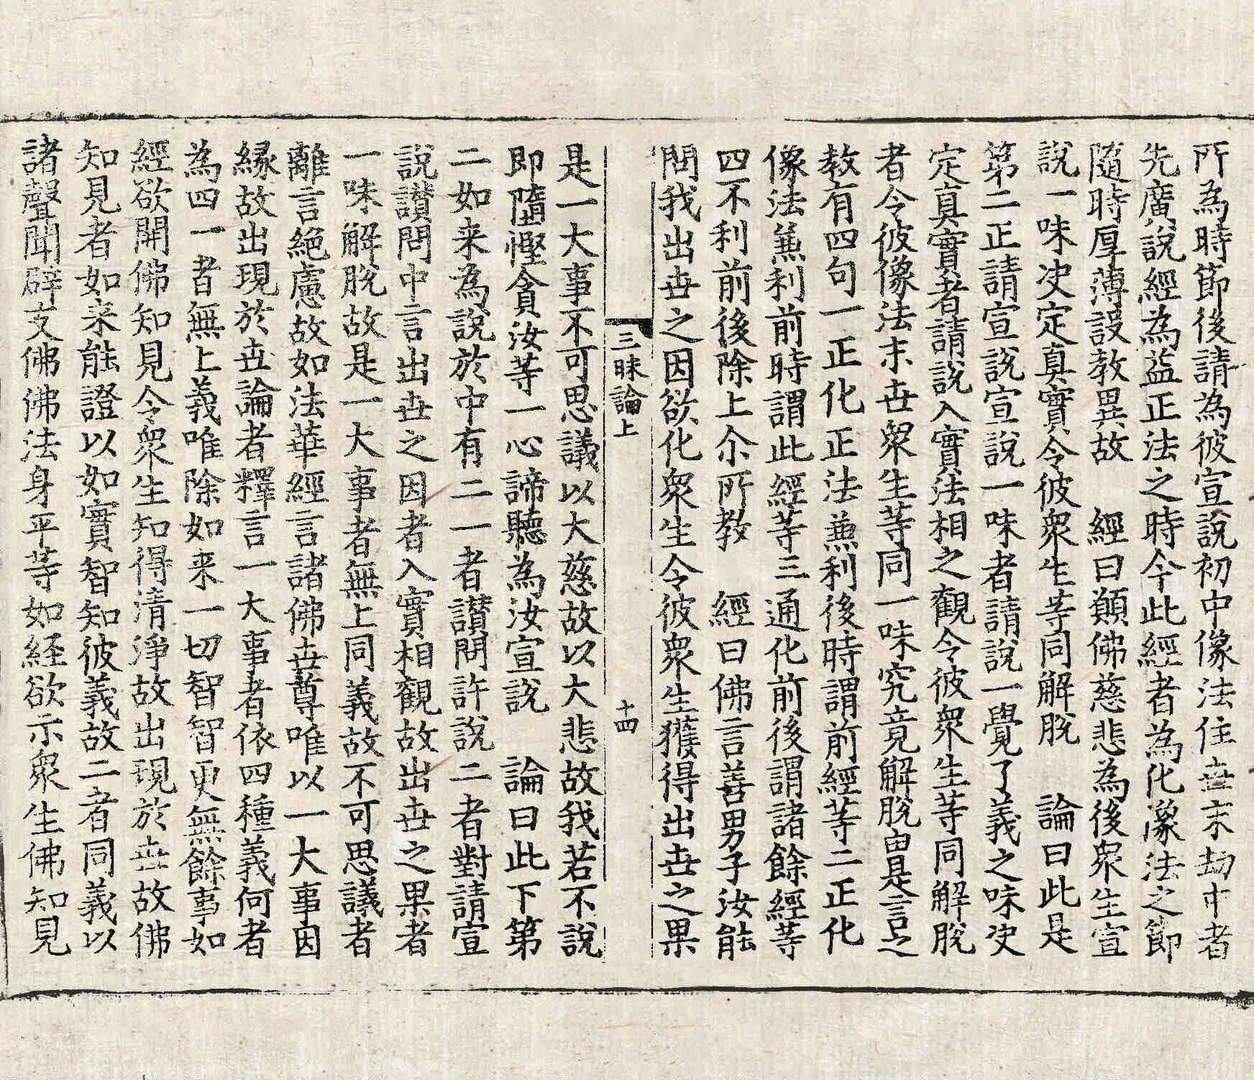 所為時節後請為彼宣說初中像法住世末劫中者
先廣說經為益正法之時今此經者為化像法之節
隨時厚薄設教異故　經曰願佛慈悲為後衆生宣
說一味决定真實令彼衆生等同解脫　論曰此是
第二正請宣說宣說一味者請說一覺了義之味决
定真實者請說入實法相之觀令彼衆生等同解脫
者令彼像法末世衆生等同一味究竟解脫由是言之
教有四句一正化正法兼利後時謂前經等二正化
像法兼利前時謂此經等三通化前後謂諸餘經等
四不利前後除上尒所教　經曰佛言善男子汝能
問我出世之因欲化衆生令彼衆生獲得出世之果
三昧論上　十四
是一大事不可思議以大慈故以大悲故我若不說
即墮慳貪汝等一心諦聽為汝宣說　論曰此下第
二如来為說於中有二一者讃問許說二者對請宣
說讃問中言出世之因者入實相觀故出世之果者
一味解脫故是一大事者無上同義故不可思議者
離言絕慮故如法華經言諸佛世尊唯以一大事因
緣故出現於世論者釋言一大事者依四種義何者
為四一者無上義唯除如来一切智智更無餘事如
經欲開佛知見令衆生知得清淨故出現於世故佛
知見者如来能證以如實智知彼義故二者同義以
諸聲聞辟支佛佛法身平等如経欲示衆生佛知見